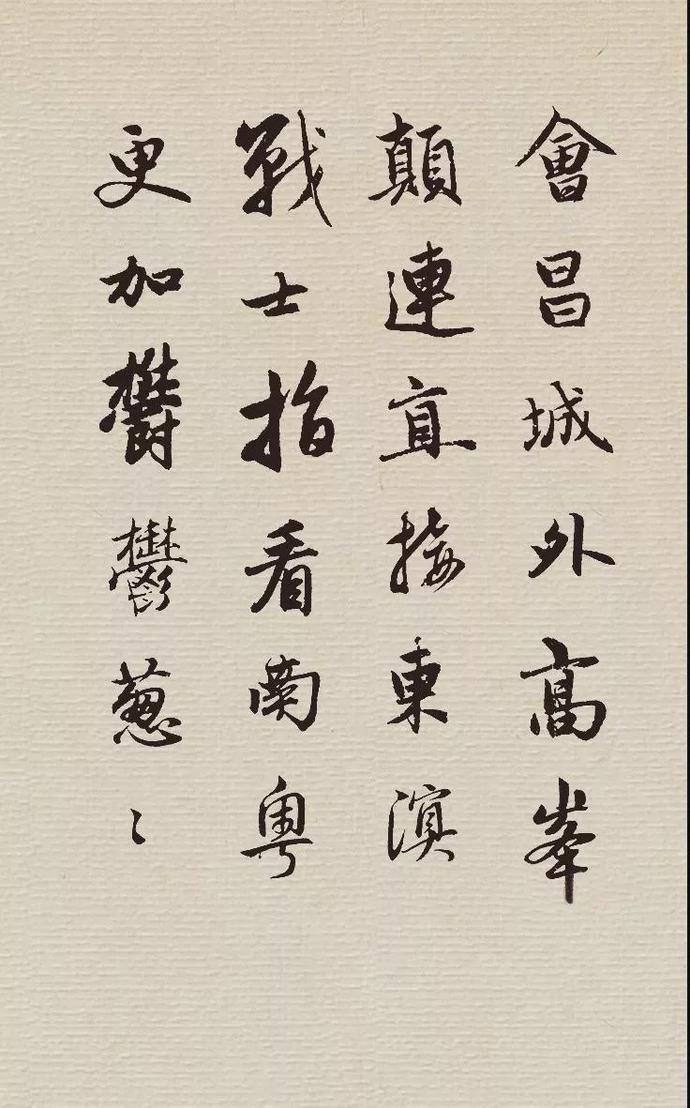 會昌城外高峯
顛連直接東溟
戰士指看南粤
更加鬱鬱蔥〻